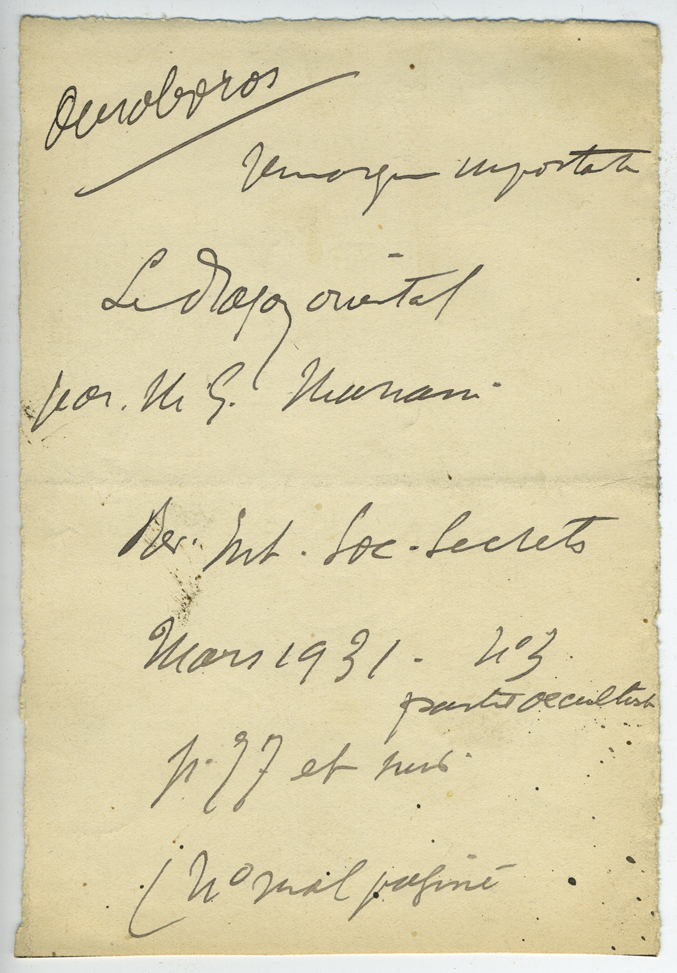 Ouroboros
remarque importante
Le dragon oriental
par. M G.
Rev. Int. Soc. Secrets
Mars 1931. n°3
partie occultiste
p. 77 et suiv.
( n° mal paginé